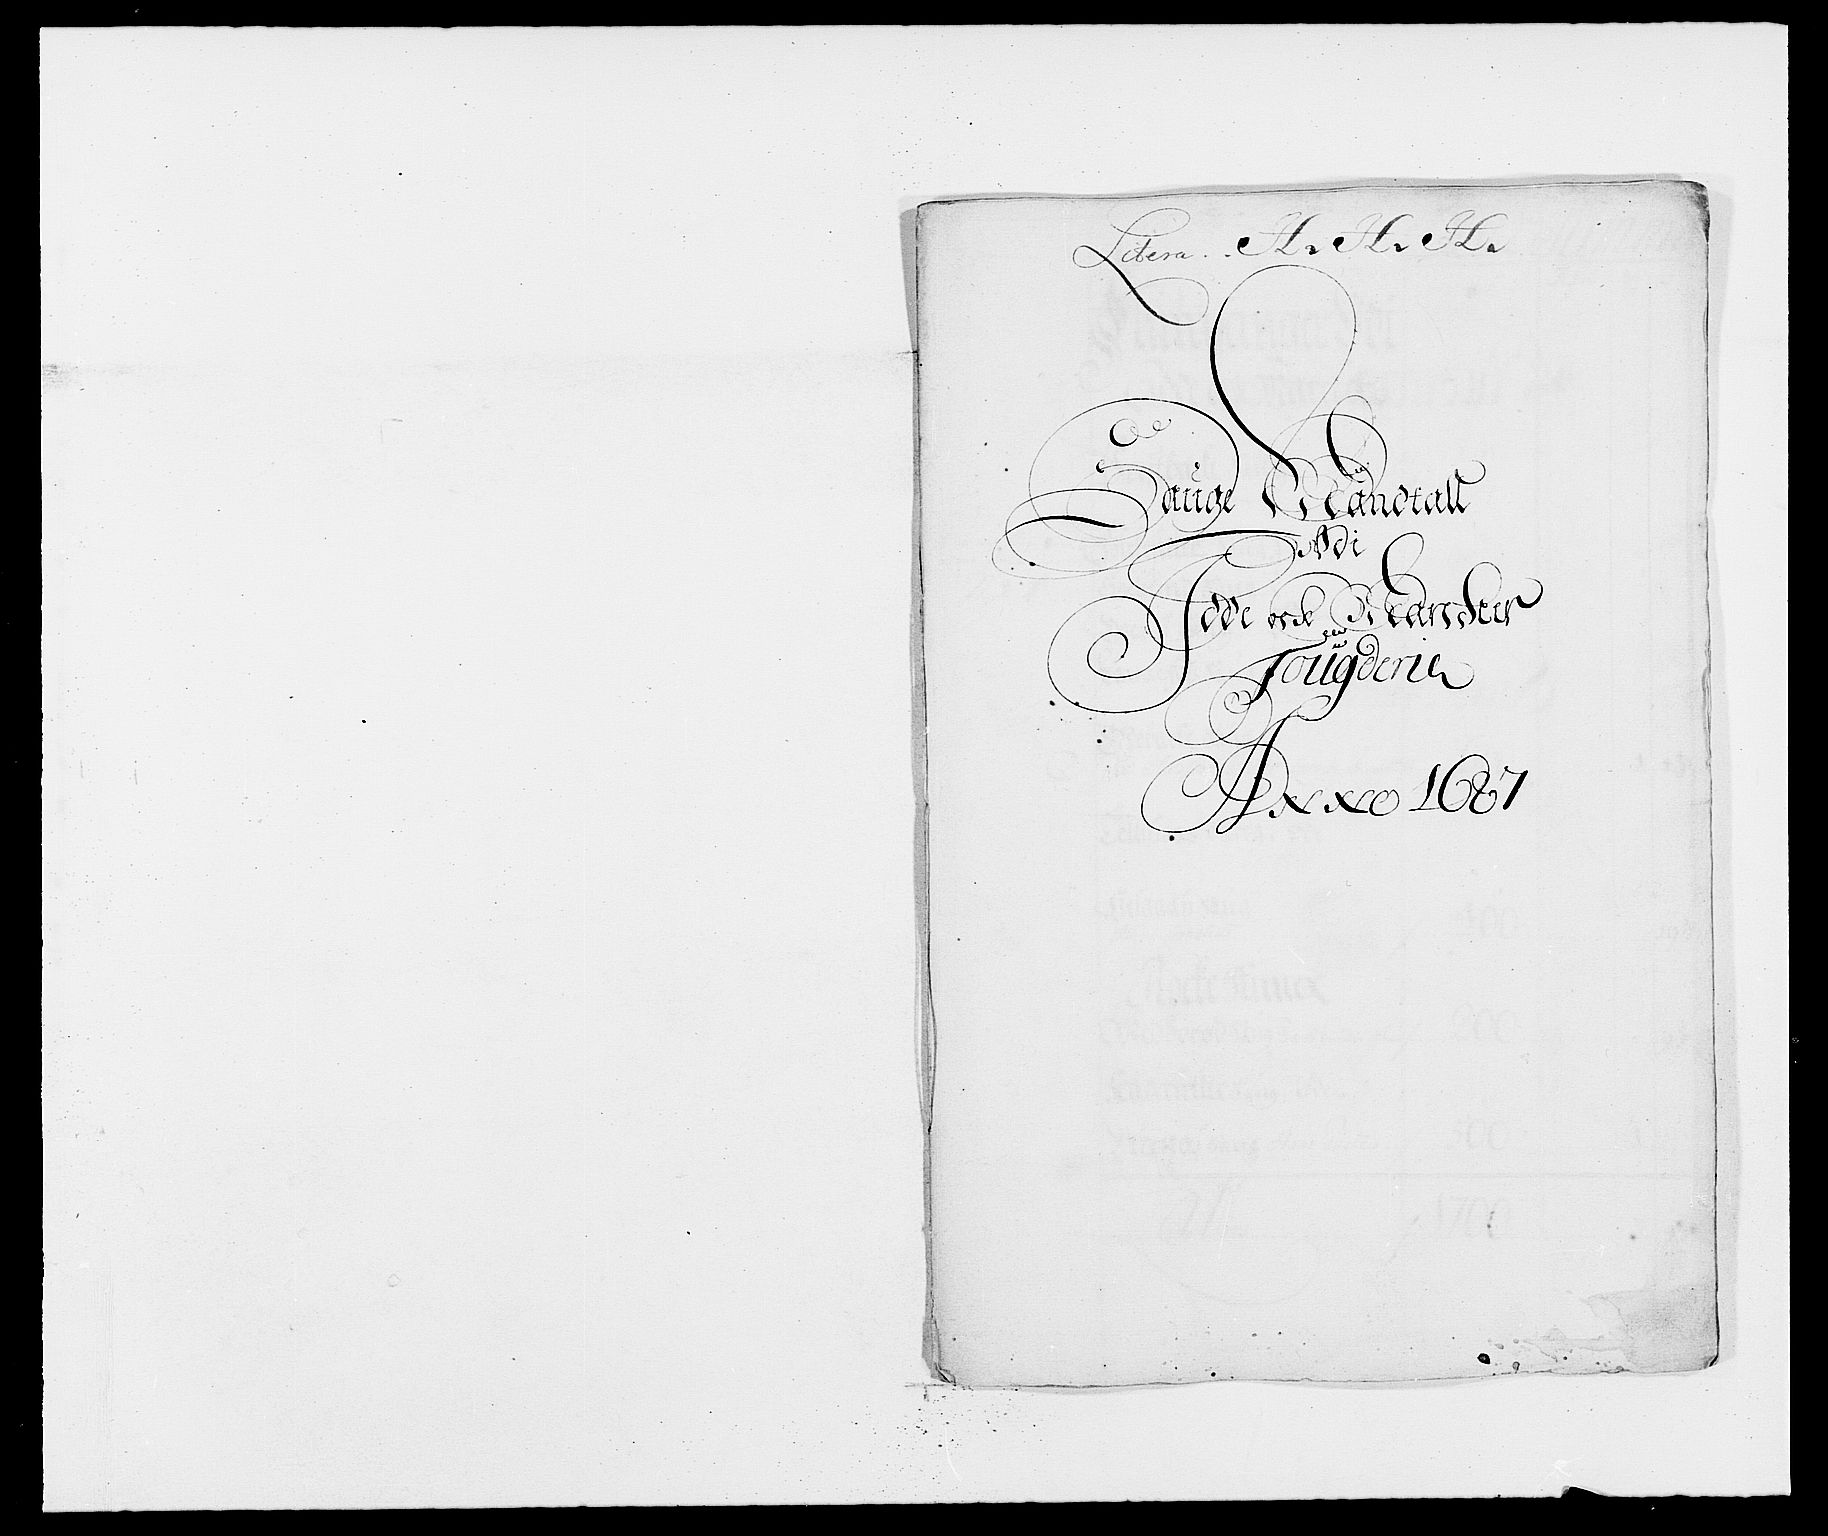 Litera. H. H. H.
Sauge Mandtall
Udi
Idde och Marcker
Fougderie
Anno 1687